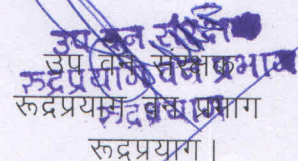 उप वन संरक्षक
रूद्रप्रयाग वन प्रभाग
उप वन संरक्षक
रूद्रप्रयाग वन प्रभाग
रूद्रप्रयाग
रूद्रप्रयाग।